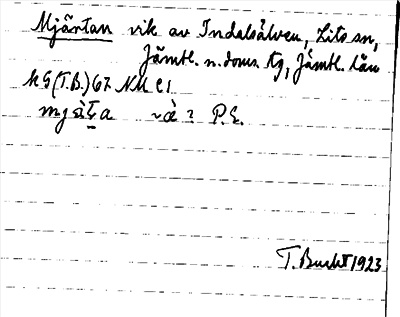 Mjärtan vik av Indalsälven, Lits sn,
Jämtl. n. doms. tg, Jämtl. län
KG (T.B.) 67. NM C1
T. Bucht 1923